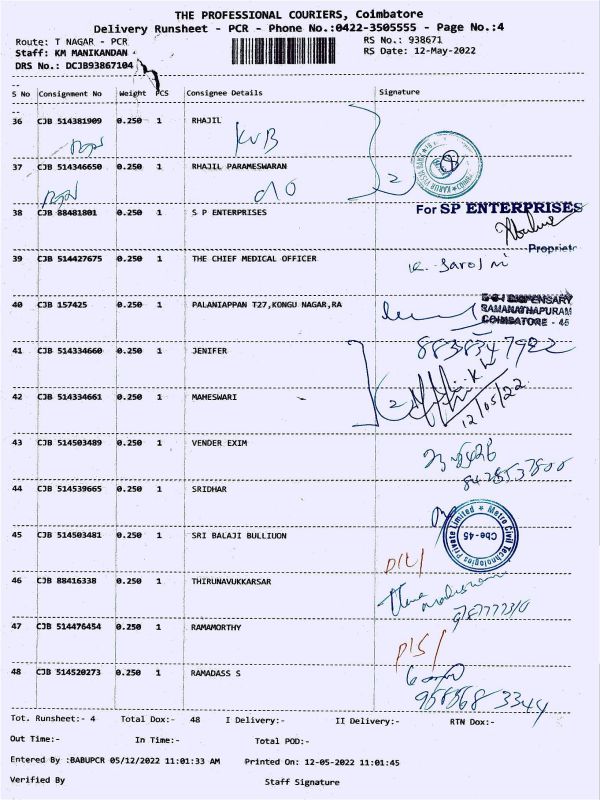 THE PROFESSIONAL COURIERS, Coimbatore
Delivery Runsheet - PCR - Phone No.:0422-3505555 - Page No.:4
Route: T NAGAR - PCR
RS No.: 938671
Staff: KM MANIKANDAN
RS Date: 12-May-2022
DRS No.: DCJB93867104
S No Consignment No Weight PCS Consignee Details Signature
36 CJB 514381909 0.250 1 RHAJIL
KVB
37 CJB 514346650 0.250 1 RHAJIL PARAMESWARAN
2
38 CJB 88481801 0.250 1 S P ENTERPRISES
For SP ENTERPRISES
Proprietor
39 CJB 514427675 0.250 1 THE CHIEF MEDICAL OFFICER
K. Saroj ni
40 CJB 157425 0.250 1 PALANIAPPAN T27,KONGU NAGAR,RA
DISPENSARY
RAMANATHAPURAM
COIMBATORE - 45
41 CJB 514334660 0.250 1 JENIFER
42 CJB 514334661 0.250 1 MAHESWARI
2
12/05/22
43 CJB 514503489 0.250 1 VENDER EXIM
44 CJB 514539665 0.250 1 SRIDHAR
Metro Civil Technologies Private Limited
Cbe-45
45 CJB 514503481 0.250 1 SRI BALAJI BULLIUON
D/L/
46 CJB 88416338 0.250 1 THIRUNAVUKKARSAR
47 CJB 514476454 0.250 1 RAMAMORTHY
P/S/
48 CJB 514520273 0.250 1 RAMADASS S
Tot. Runsheet:- 4 Total Dox:- 48 I Delivery:- II Delivery:- RTN Dox:-
Out Time:- In Time:- Total POD:-
Entered By :BABUPCR 05/12/2022 11:01:33 AM Printed On: 12-05-2022 11:01:45
Verified By Staff Signature